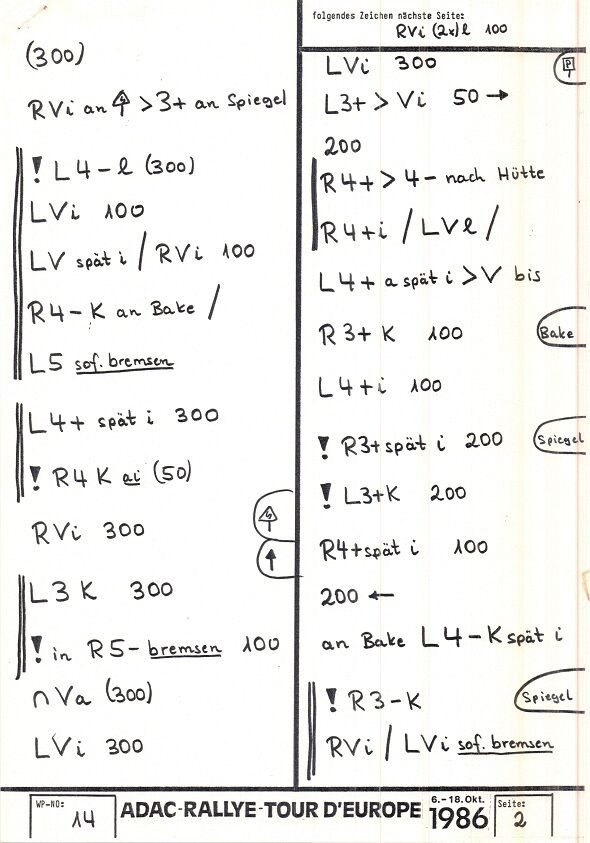 (300)
RVi an > 3+ an Spiegel
! L4-l (300)
LVi 100
LV spät i / RVi 100
R4-K an Bake /
L5 sof. bremsen
L4+ spät i 300
! R4 K ai (50)
RVi 300
L3 K 300
! in R5- bremsen 100
∩ Va (300)
LVi 300
folgendes Zeichen nächste Seite:
RVi (2x) l 100
LVi 300
P
L3+ > Vi 50 →
200
R4+ > 4- nach Hütte
R4+i / LVl /
L4+ a spät i > V bis
R3+ K 100
Bake
L4+i 100
! R3+spät i 200
Spiegel
! L3+K 200
R4+spät i 100
200 ←
an Bake L4-K spät i
Spiegel
! R3-K
RVi / LVi sof. bremsen
WP-NO: 14
ADAC-RALLYE-TOUR D'EUROPE
6.-18.Okt.
1986
Seite: 2